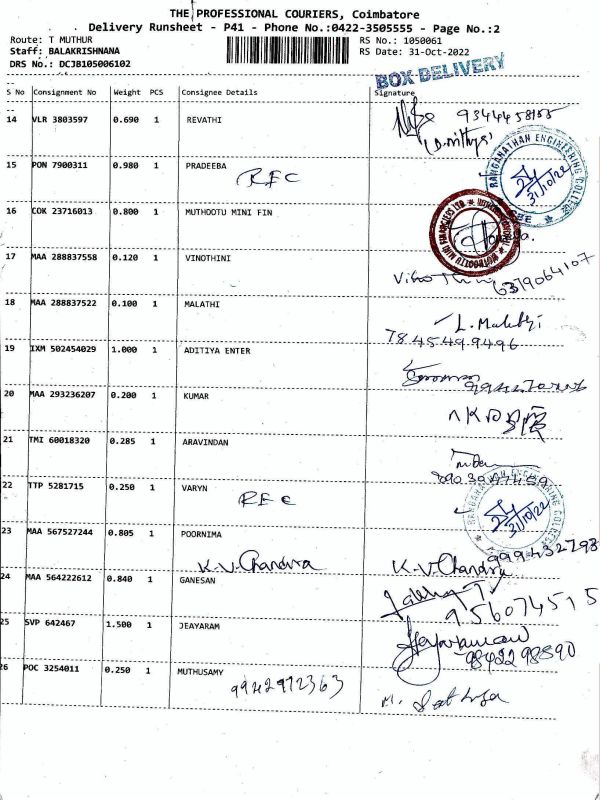 THE PROFESSIONAL COURIERS, Coimbatore
Delivery Runsheet - P41 - Phone No.:0422-3505555 - Page No.:2
Route: T MUTHUR RS No.: 1050061
Staff: BALAKRISHNANA RS Date: 31-Oct-2022
DRS No.: DCJB105006102
BOX DELIVERY
S No Consignment No Weight PCS Consignee Details Signature
14 VLR 3803597 0.690 1 REVATHI
9344458155
15 PON 7900311 0.980 1 PRADEEBA
REC
RANGANATHAN ENGINEERING COLLEGE
31/10/22
CBE
16 COK 23716013 0.800 1 MUTHOOTU MINI FIN
17 MAA 288837558 0.120 1 VINOTHINI
6319064107
18 MAA 288837522 0.100 1 MALATHI
L. Malathi
7845499496
19 IXM 502454029 1.000 1 ADITIYA ENTER
20 MAA 293236207 0.200 1 KUMAR
21 TMI 60018320 0.285 1 ARAVINDAN
22 TTP 5281715 0.250 1 VARYN
REC
RANGANATHAN ENGINEERING COLLEGE
31/10/22
23 MAA 567527244 0.805 1 POORNIMA
K.V. Chandra K.V. Chandra
24 MAA 564222612 0.840 1 GANESAN
956074515
25 SVP 642467 1.500 1 JEAYARAM
26 POC 3254011 0.250 1 MUTHUSAMY
9942972363